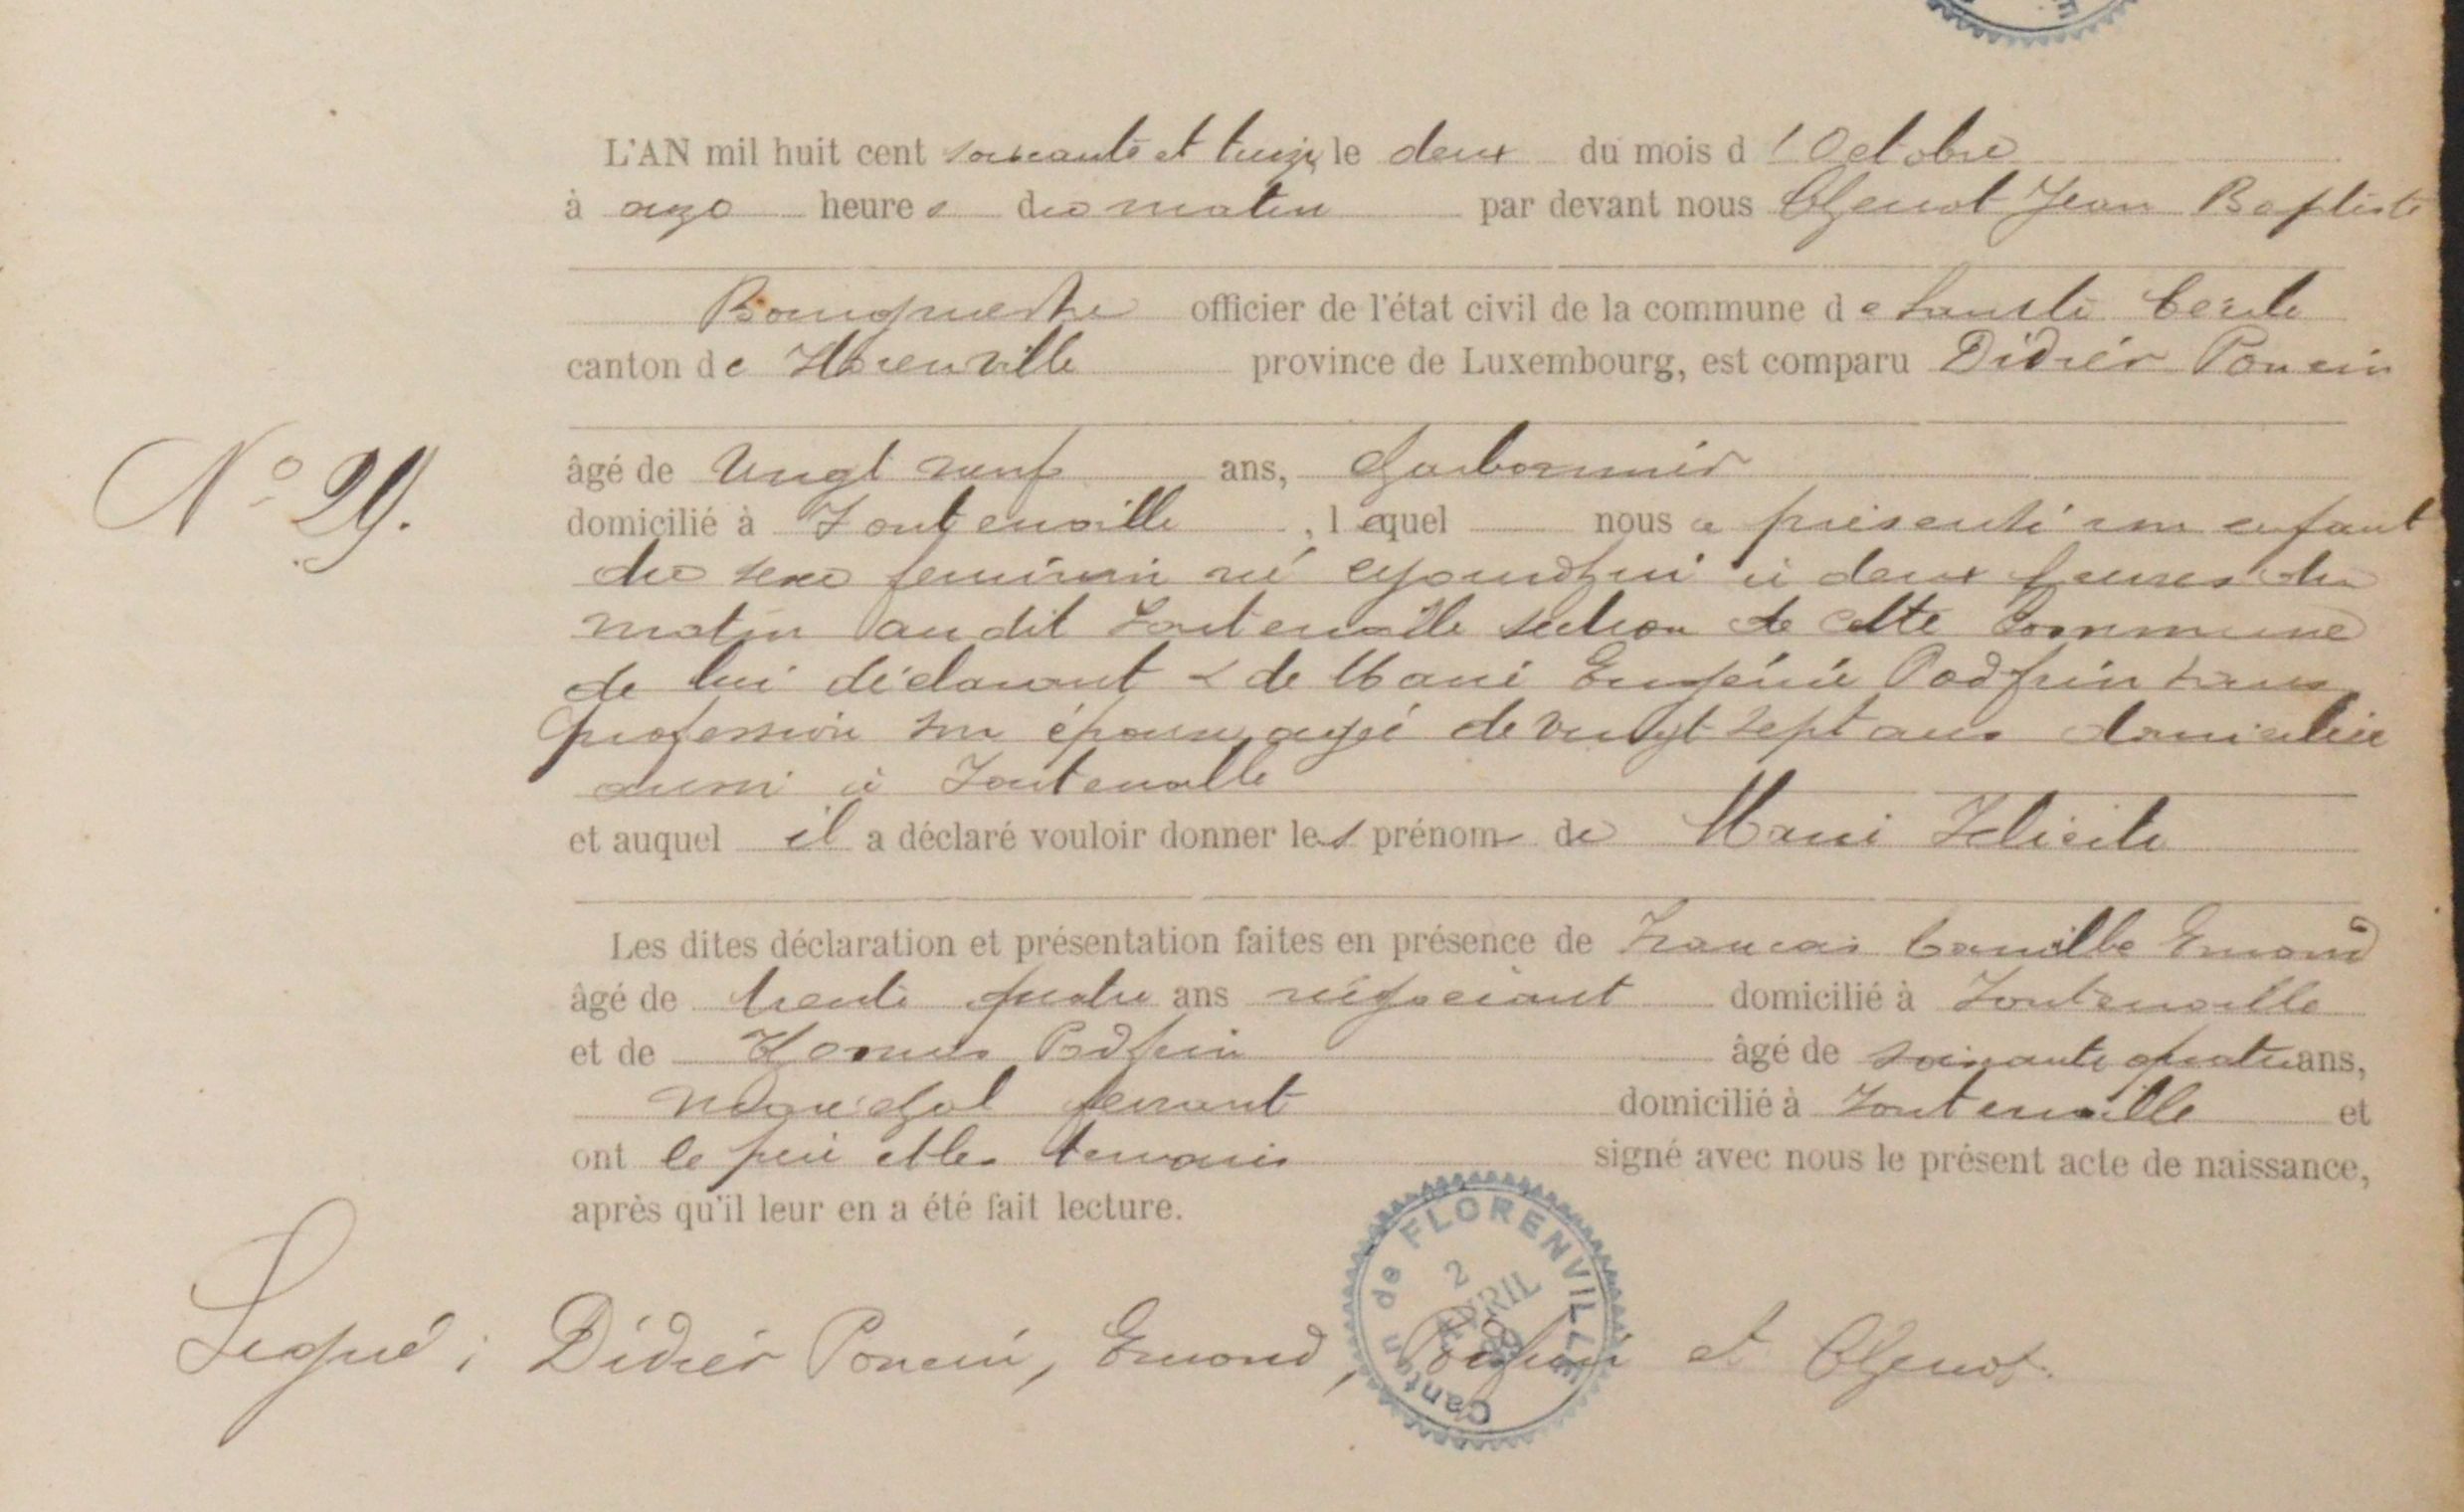 L'AN mil huit cent soixante et treize le deux du mois d'Octobre
à onze heures du matin par devant nous Jean Baptiste
Bourgmestre officier de l'état civil de la commune de Sainte Cécile
canton de Florenville province de Luxembourg, est comparu Didier Poncin
N° 29.
âgé de vingt neuf ans,
domicilié à Fontenoille, lequel nous a présenté un enfant
du sexe feminin né aujourd'hui à deux heures du
matin audit Fontenoille section de cette Commune
de lui déclarant & de Marie Eugénie Podfrin sans
profession son épouse, agée de vingt sept ans domiciliée
aussi à Fontenoille
et auquel il a déclaré vouloir donner les prénoms de Marie Félicité
Les dites déclaration et présentation faites en présence de Francois Camille Emond
âgé de trente quatre ans négociant domicilié à Fontenoille
et de Podfrin âgé de soixante quatre ans,
maréchal ferrant domicilié à Fontenoille et
ont le père et les temoins signé avec nous le présent acte de naissance,
après qu'il leur en a été fait lecture.
Canton de FLORENVILLE
2 AVRIL
Signé; Didier Poncin, Emond, Podfrin et